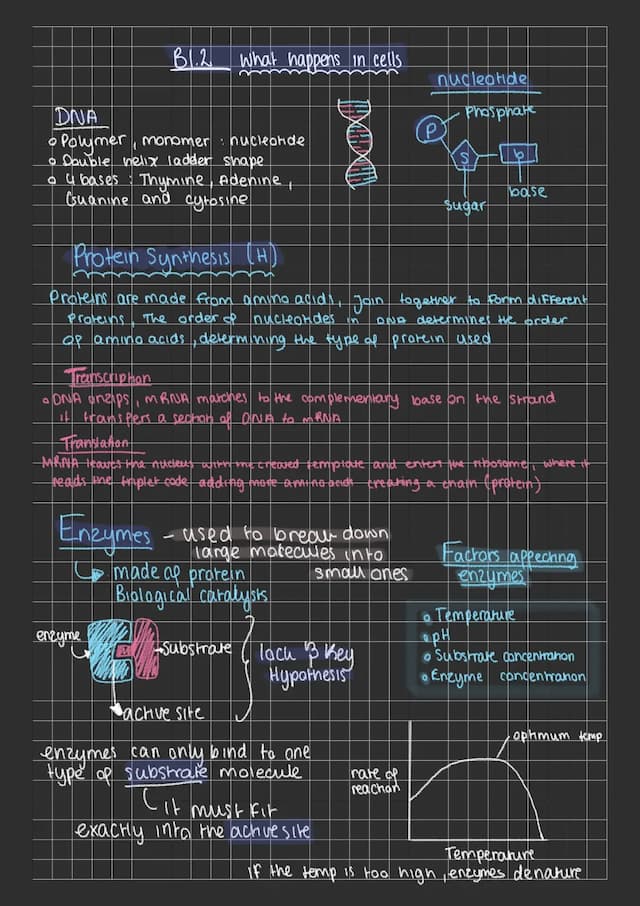 B1.2 What happens in cells
nucleotide
Phosphate
P
S
b
base
sugar
DNA
Polymer, monomer : nucleotide
Double helix ladder shape
4 bases : Thymine, Adenine,
Guanine and cytosine
Protein Synthesis (H)
Proteins are made from amino acids, Join together to form different
Proteins, The order of nucleotides in DNA determines the order
of amino acids, determining the type of protein used
Transcription
DNA unzips, mRNA matches to the complementary base on the strand
it transfers a section of DNA to mRNA
Translation
MRNA leaves the nucleus with the created template and enters the ribosome, where it
reads the triplet code adding more amino acids creating a chain (protein)
Enzymes - used to break down
large molecules into
small ones
made of protein
Biological catalysts
Factors affecting
enzymes
Temperature
pH
Substrate concentration
Enzyme concentration
enzyme
Substrate
active site
lock & Key
Hypothesis
enzymes can only bind to one
type of substrate molecule
it must fit
exactly into the active site
optimum temp
rate of
reaction
Temperature
IF the temp is too high, enzymes denature